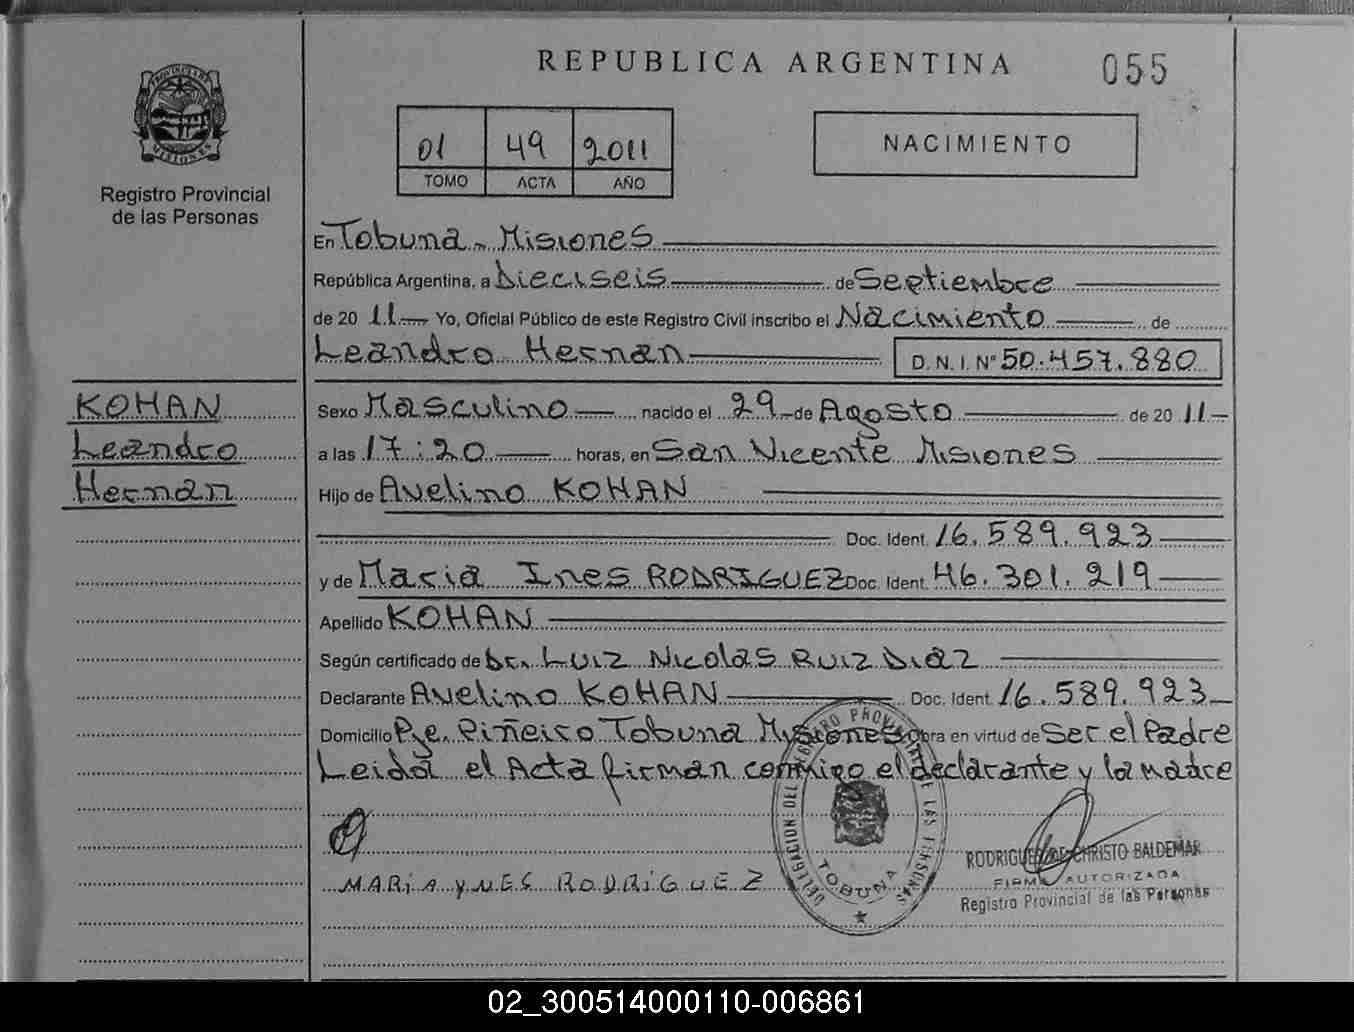 REPUBLICA ARGENTINA
055
PROVINCIA DE MISIONES
Registro Provincial
de las Personas
01 49 2011
TOMO ACTA AÑO
NACIMIENTO
En Tobuna - Misiones
República Argentina, a Dieciseis de Septiembre
de 20 11 Yo, Oficial Público de este Registro Civil inscribo el Nacimiento de
Leandro Hernan D. N. I. Nº 50.457.880
KOHAN
Leandro
Hernan
Sexo Masculino nacido el 29 de Agosto de 20 11
a las 17:20 horas, en San Vicente Misiones
Hijo de Avelino KOHAN
Doc. Ident. 16.589.923
y de Maria Ines RODRIGUEZ Doc. Ident. 46.301.219
Apellido KOHAN
Según certificado de Dr. Luiz Nicolas Ruiz Diaz
Declarante Avelino KOHAN Doc. Ident. 16.589.923
Domicilio Pje. Piñeiro Tobuna Misiones Obra en virtud de Ser el Padre
Leida el Acta firman conmigo el declarante y la madre
MARiA yNES RODRiGUEZ
DELEGACION DEL REGISTRO PROVINCIAL DE LAS PERSONAS
TOBUNA
RODRIGUEZ DE CHRISTO BALDEMAR
FIRMA AUTORIZADA
Registro Provincial de las Personas
02_300514000110-006861